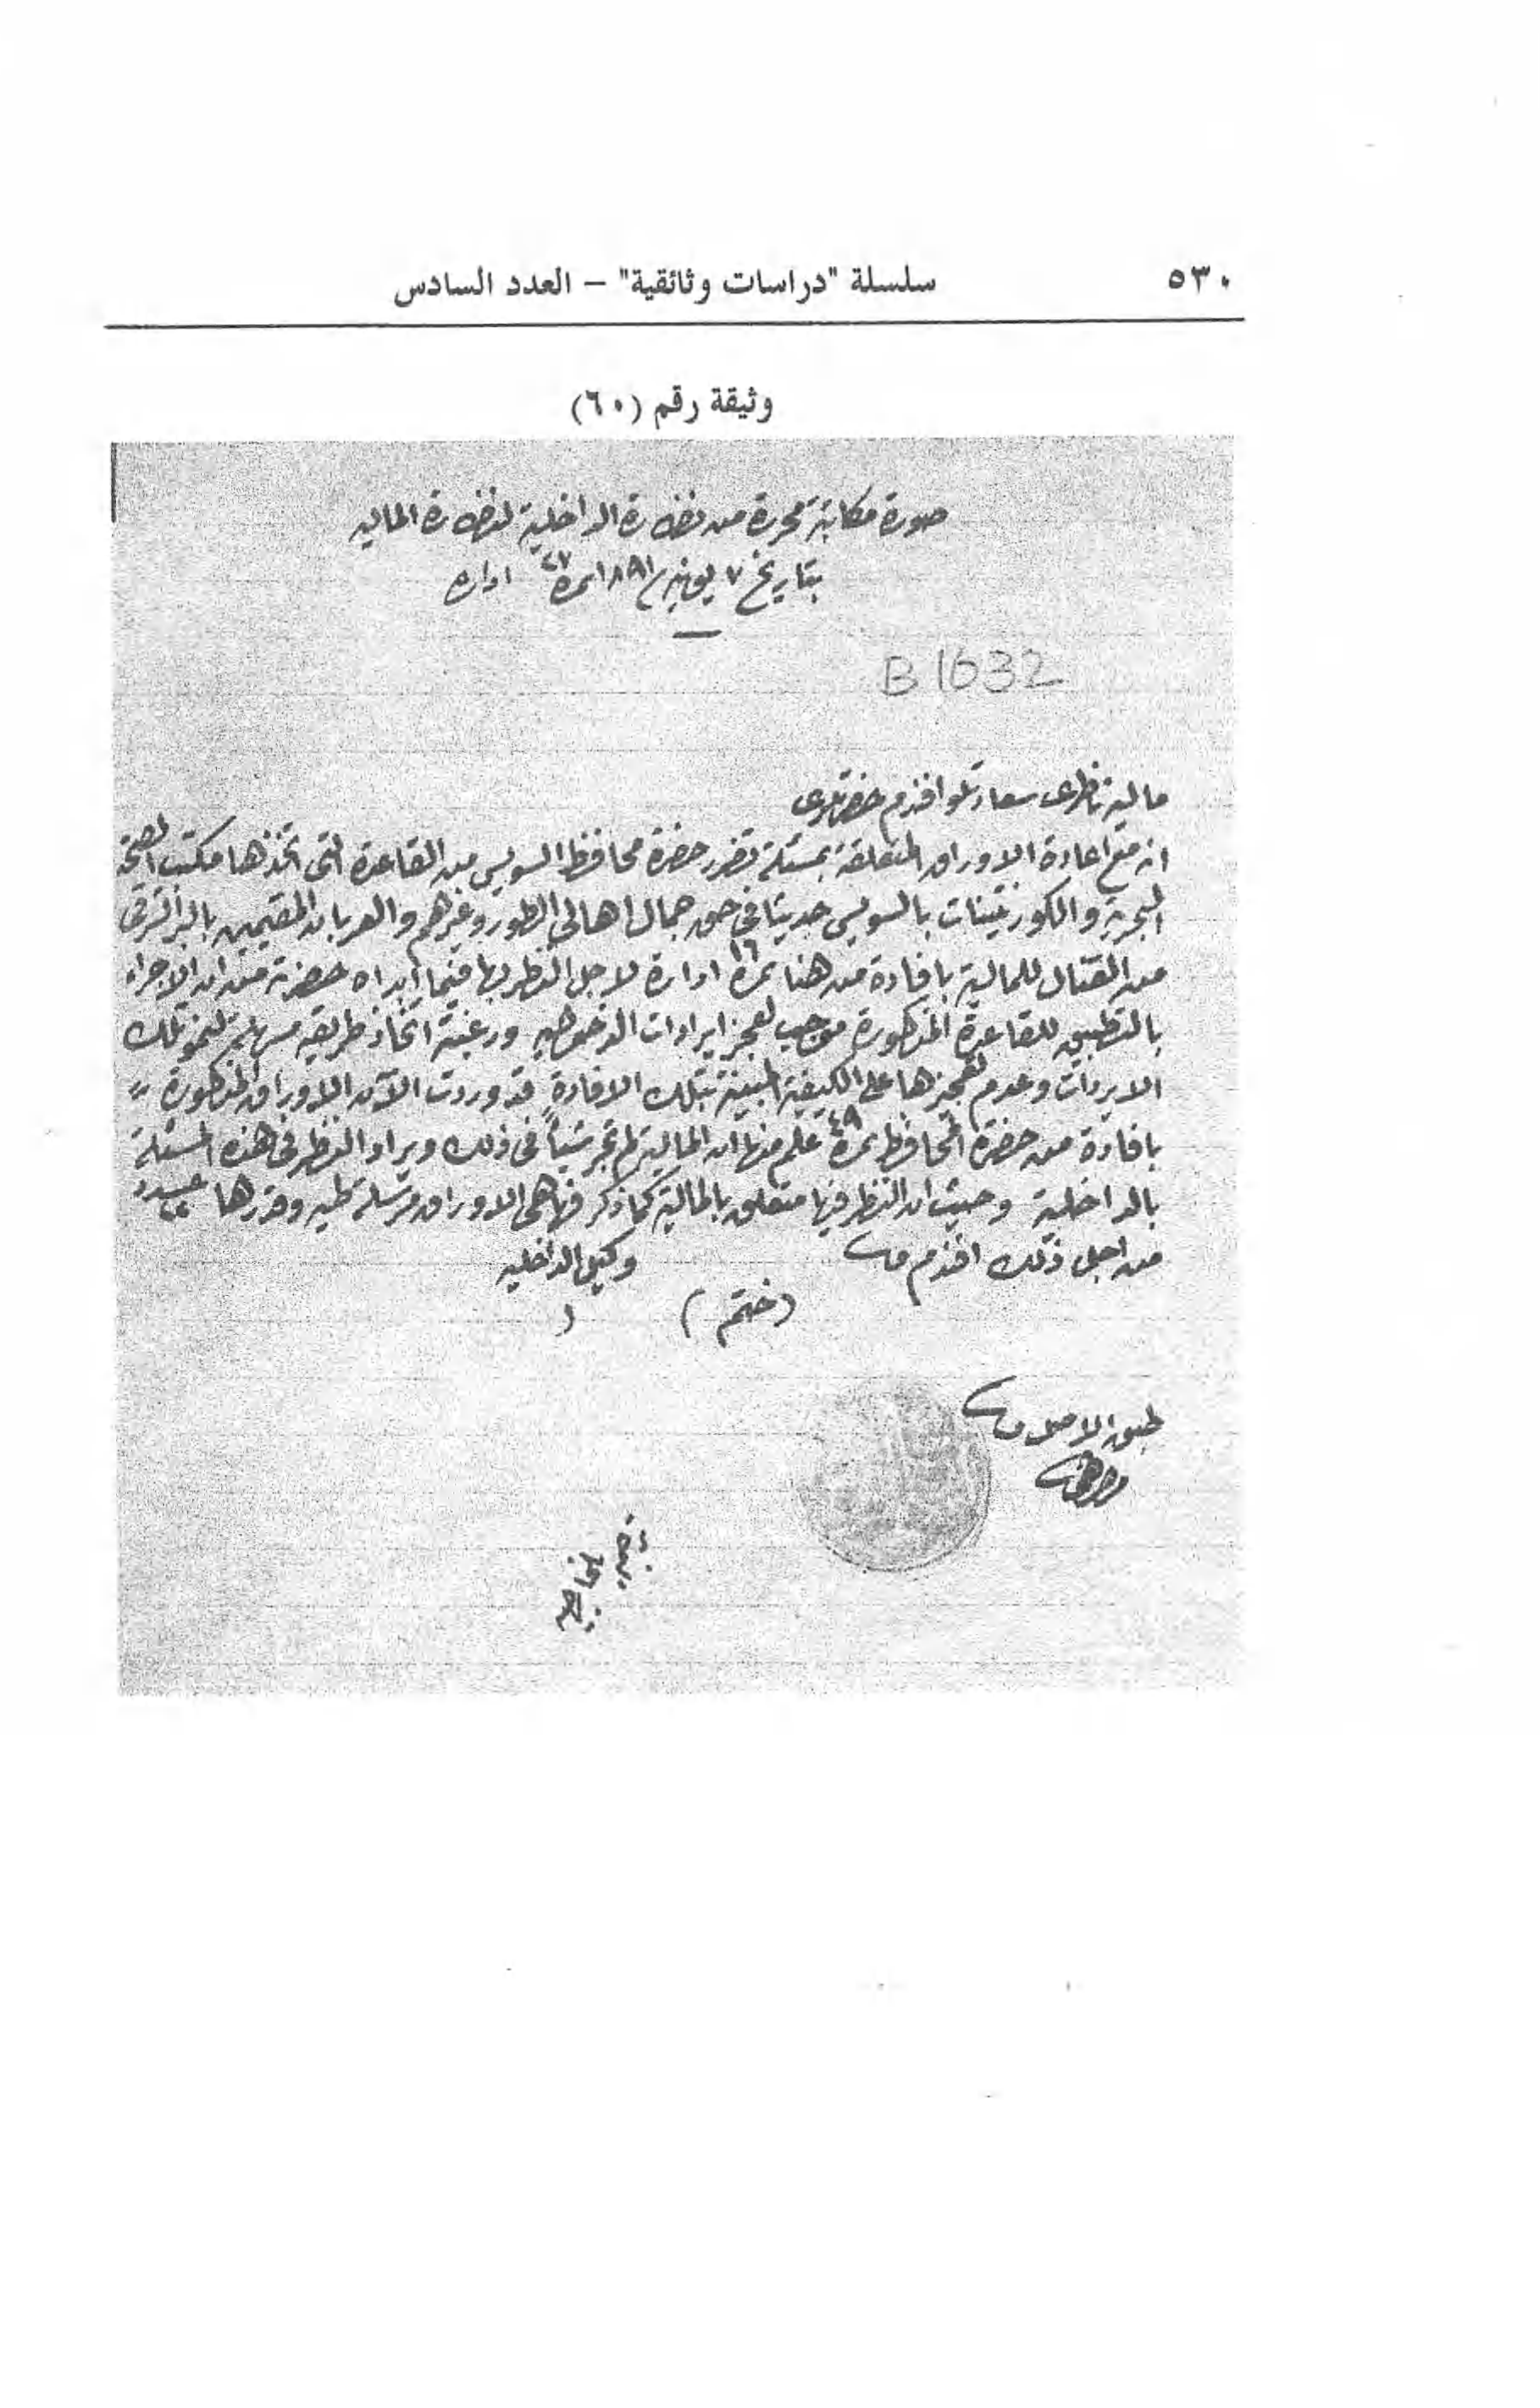 ٥٣٠
سلسلة "دراسات وثائقية" – العدد السادس
وثيقة رقم (٦٠)
صورة مكاتبة محررة من نظارة الداخلية لنظارة المالية
بتاريخ ٧ يونيه ١٨٩١ نمرة ٢٧ اداره
B 1632
مالية ناظرى سعادتلو افندم حضرتلرى
انه مع اعادة الاوراق المتعلقة بمسئلة تضرر حضرة محافظ السويس من القاعدة التى اتخذها مكتب الصحة
البحرية والكورنتينات بالسويس حديثا فى حق جمال اهالي الطور وغيرهم والعربان المقيمين بالبر الشرقى
من القنال للمالية بافادة من هنا نمرة ١٦ ادارة لاجل النظر بها فيما أبداه حضرته من ان الاجراء
بالتطبيق للقاعدة المذكورة موجب لعجز ايرادات الدخوليه ورغبته اتخاذ طريقه لنمو تلك
الايردات وعدم عجزها على الكيفية المبينة بتلك الافادة قد وردت الآن الاوراق المذكورة
بافادة من حضرة المحافظ نمرة ٤٩ علم منها ان المالية لم تجر شيئاً فى ذلك ويراد النظر فى هذه المسئلة
بالداخلية وحيث ان النظر فيها متعلق بالمالية كما ذكر فها هى الاوراق مرسلة طيه وقدرها عدد
من اجل ذلك افندم
وكيل الداخليه
(ختم)
طبق الاصل